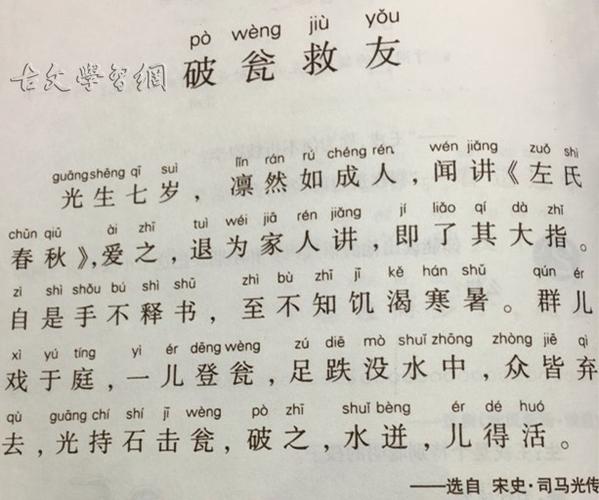 pò wèng jiù yǒu
破瓮救友
古文學習網
guāngshēng qī suì lǐn rán rú chéng rén wén jiǎng zuǒ shì
光生七岁，凛然如成人，闻讲《左氏
chūn qiū ài zhī tuì wéi jiā rén jiǎng jí liǎo qí dà zhǐ
春秋》，爱之，退为家人讲，即了其大指。
zì shì shǒu bú shì shū zhì bù zhī jī kě hán shǔ qún ér
自是手不释书，至不知饥渴寒暑。群儿
xì yú tíng yì ér dēng wèng zú diē mò shuǐ zhōng zhòng jiē qì
戏于庭，一儿登瓮，足跌没水中，众皆弃
qù guāng chí shí jī wèng pò zhī shuǐ bèng ér dé huó
去，光持石击瓮，破之，水迸，儿得活。
——选自 宋史·司马光传